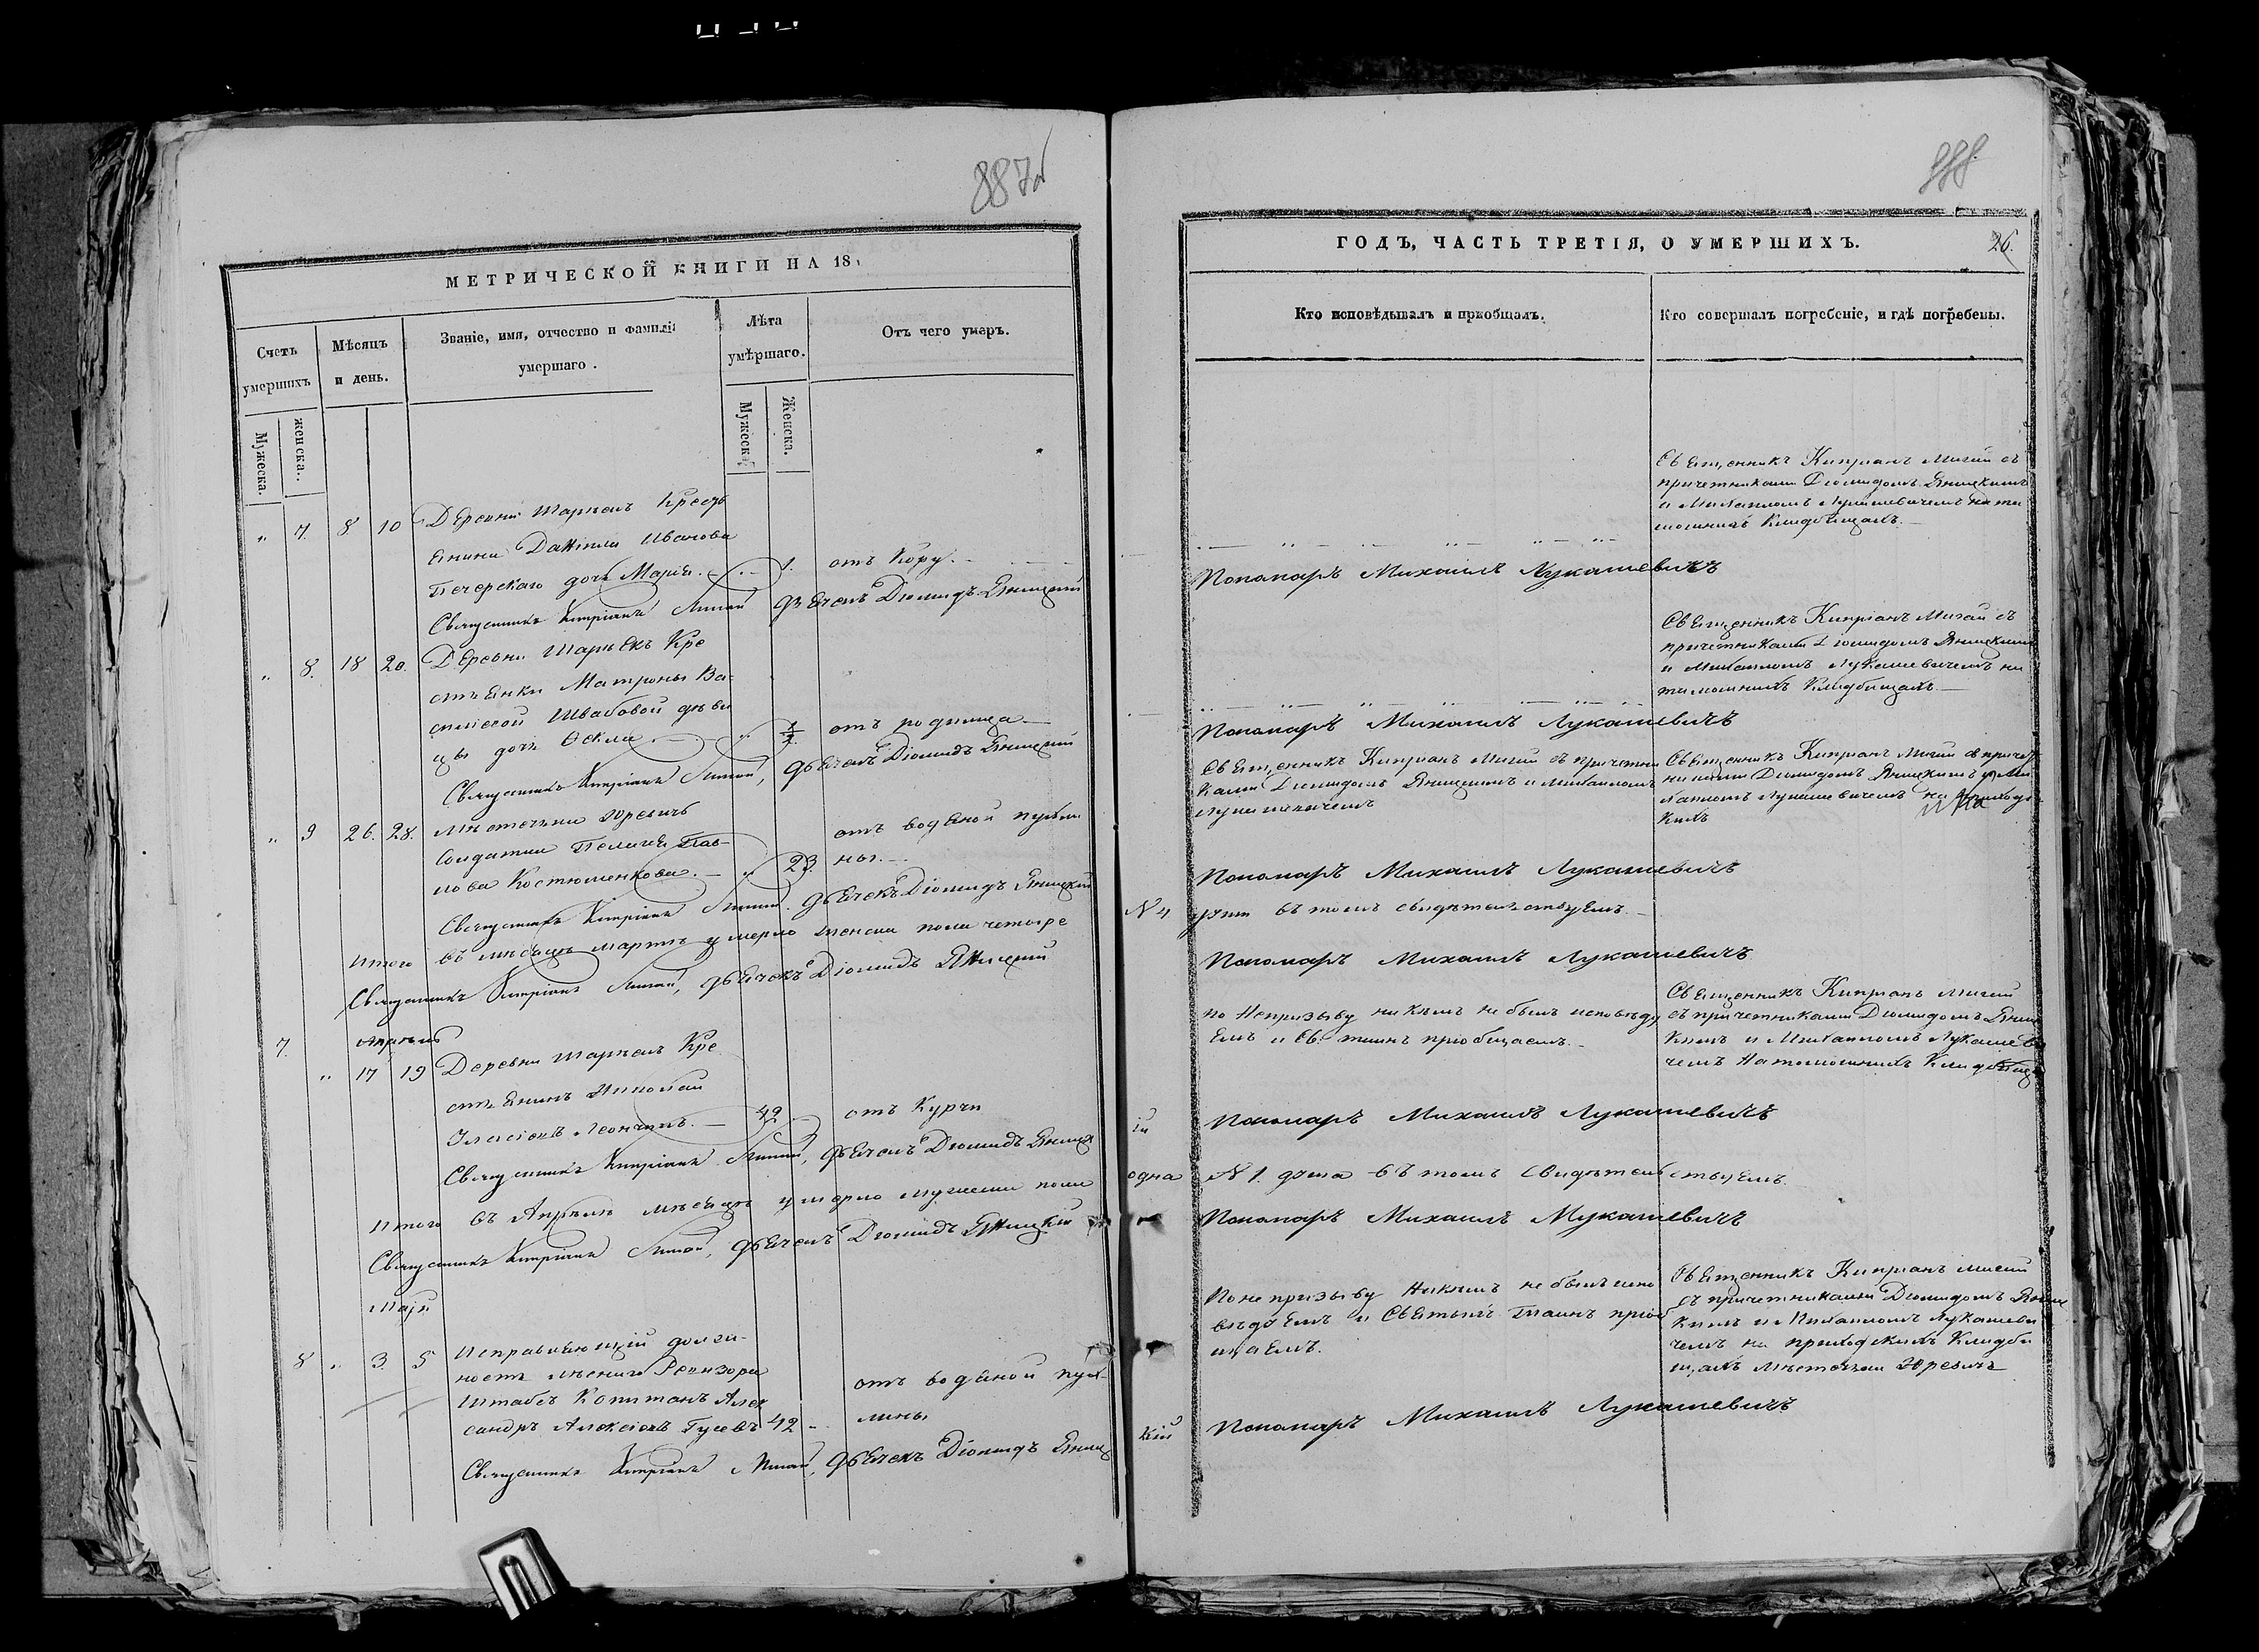 887
МЕТРИЧЕСКОЙ КНИГИ НА 18
Счетъ умершихъ
Мѣсяцъ и день.
Званіе, имя, отчество и фамилія умершаго.
Лѣта умершаго.
Отъ чего умеръ.
Мужеска.
женска.
Мужеска.
Женска.
„ 7. 8 10 Деревни Кресть
янина Даніила Иванова
Печерскаго дочь Марія. 1. отъ Кору.
Священникъ Кипріанъ Дьячекъ Діомидъ Яницкій
„ 8. 18 20. Деревни Кре
стьянки Матроны Ва
силіевой Швабовой дѣви
цы дочь отъ родимца
Священникъ Кипріанъ Дьячекъ Діомидъ Яницкій
„ 9 26. 28. Мѣстечка Юревичь
Солдатка Пав-
лова Костюченкова. „ 23. отъ водяной пухли
ны.
Священникъ Кипріанъ Дьячекъ Діомидъ Яницкій
Итого въ мѣсяцѣ мартѣ умерло женска пола четыре
Священникъ Кипріанъ Дьячекъ Діомидъ Яницкій
Апрѣль
7. „ 17 19 Деревни Кре
стьянинъ Николай
42 отъ Курчи
Священникъ Кипріанъ Дьячекъ Діомидъ Яницк
Итого въ Апрѣлѣ мѣсяцѣ умерло мужеска пола
Священникъ Кипріанъ Дьячекъ Діомидъ Яницкій
Май
8 „ 3. 5 Исправляющій долж-
ность лѣснаго Ревизора
Штабсъ Капитанъ Алек
сандръ Алексіевъ Гусевъ 42 „ отъ водяной пух-
лины
Священникъ Кипріанъ Дьячекъ Діомидъ Яниц
888
ГОДЪ, ЧАСТЬ ТРЕТІЯ, О УМЕРШИХЪ.
26.
Кто исповѣдывалъ и пріобщалъ.
Кто совершалъ погребеніе, и гдѣ погребены.
Священникъ Кипріанъ съ
причетниками Діомидомъ Яницкимъ
и Михаиломъ Лукашевичемъ на та
мошнихъ Кладбищахъ.
Пономарь Михаилъ Лукашевичъ
Священникъ Кипріанъ съ
причетниками Діомидомъ Яницкимъ
и Михаиломъ Лукашевичемъ на
тамошнихъ Кладбищахъ.
Пономарь Михаилъ Лукашевичъ
Священникъ Кипріанъ съ причетни
ками Діомидомъ Яницкимъ и Михаиломъ
Лукашевичемъ
Священникъ Кипріанъ съ причет
никами Діомидомъ Яницкимъ и Ми
хаиломъ Лукашевичемъ на приходс
кихъ
Пономарь Михаилъ Лукашевичъ
N 4 душъ въ томъ свидѣтельствуемъ.
Пономарь Михаилъ Лукашевичъ
по Непризыву никѣмъ не былъ исповѣду
емъ и Св. таинъ пріобщаемъ.
Священникъ Кипріанъ
съ причетниками Діомидомъ Яниц
кимъ и Михаиломъ Лукашеви
чемъ На тамошнихъ Кладбища
ій Пономарь Михаилъ Лукашевичъ
одна N 1. душа въ томъ Свидѣтельствуемъ.
Пономарь Михаилъ Лукашевичъ
По не призыву Никѣмъ не былъ испо
вѣдуемъ и Святыхъ Таинъ пріоб
щаемъ.
Священникъ Кипріанъ
съ причетниками Діомидомъ Яниц
кимъ и Михаиломъ Лукашеви
чемъ на приходскихъ Кладби
щахъ Мѣстечка Юревичъ
кій Пономарь Михаилъ Лукашевичъ